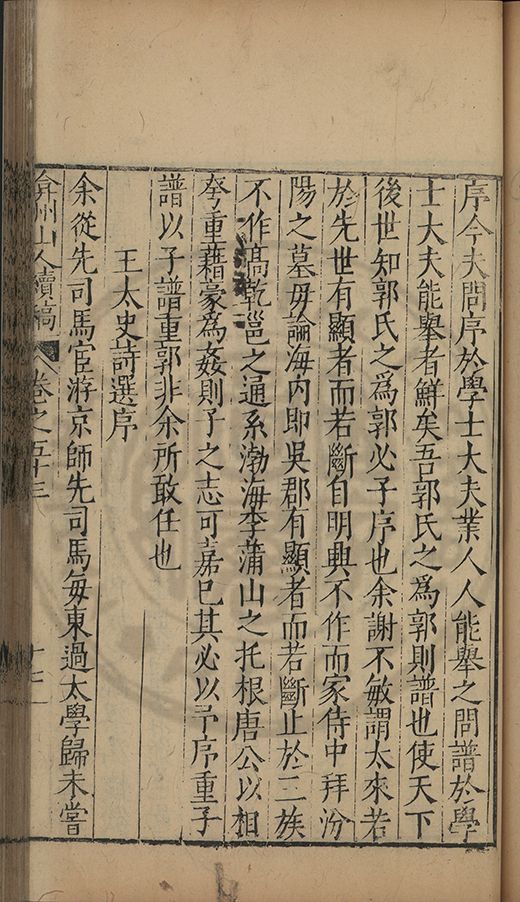 序今夫問序於學士大夫業人人能舉之問譜於學
士大夫能舉者鮮矣吾郭氏之爲郭則譜也使天下
後世知郭氏之爲郭必子序也余謝不敏謂太來若
於先世有顯者而若斷自明興不作而家侍中拜汾
陽之墓毋論海内即吳郡有顯者而若斷止於三族
不作高乾邕之通系渤海李蒲山之托根唐公以相
夸重藉豪爲姦則子之志可嘉已其必以予序重子
譜以子譜重郭非余所敢任也
王太史詩選序
余從先司馬宦游京師先司馬每東過太學歸未嘗
弇州山人續稿 卷之五十三 十七